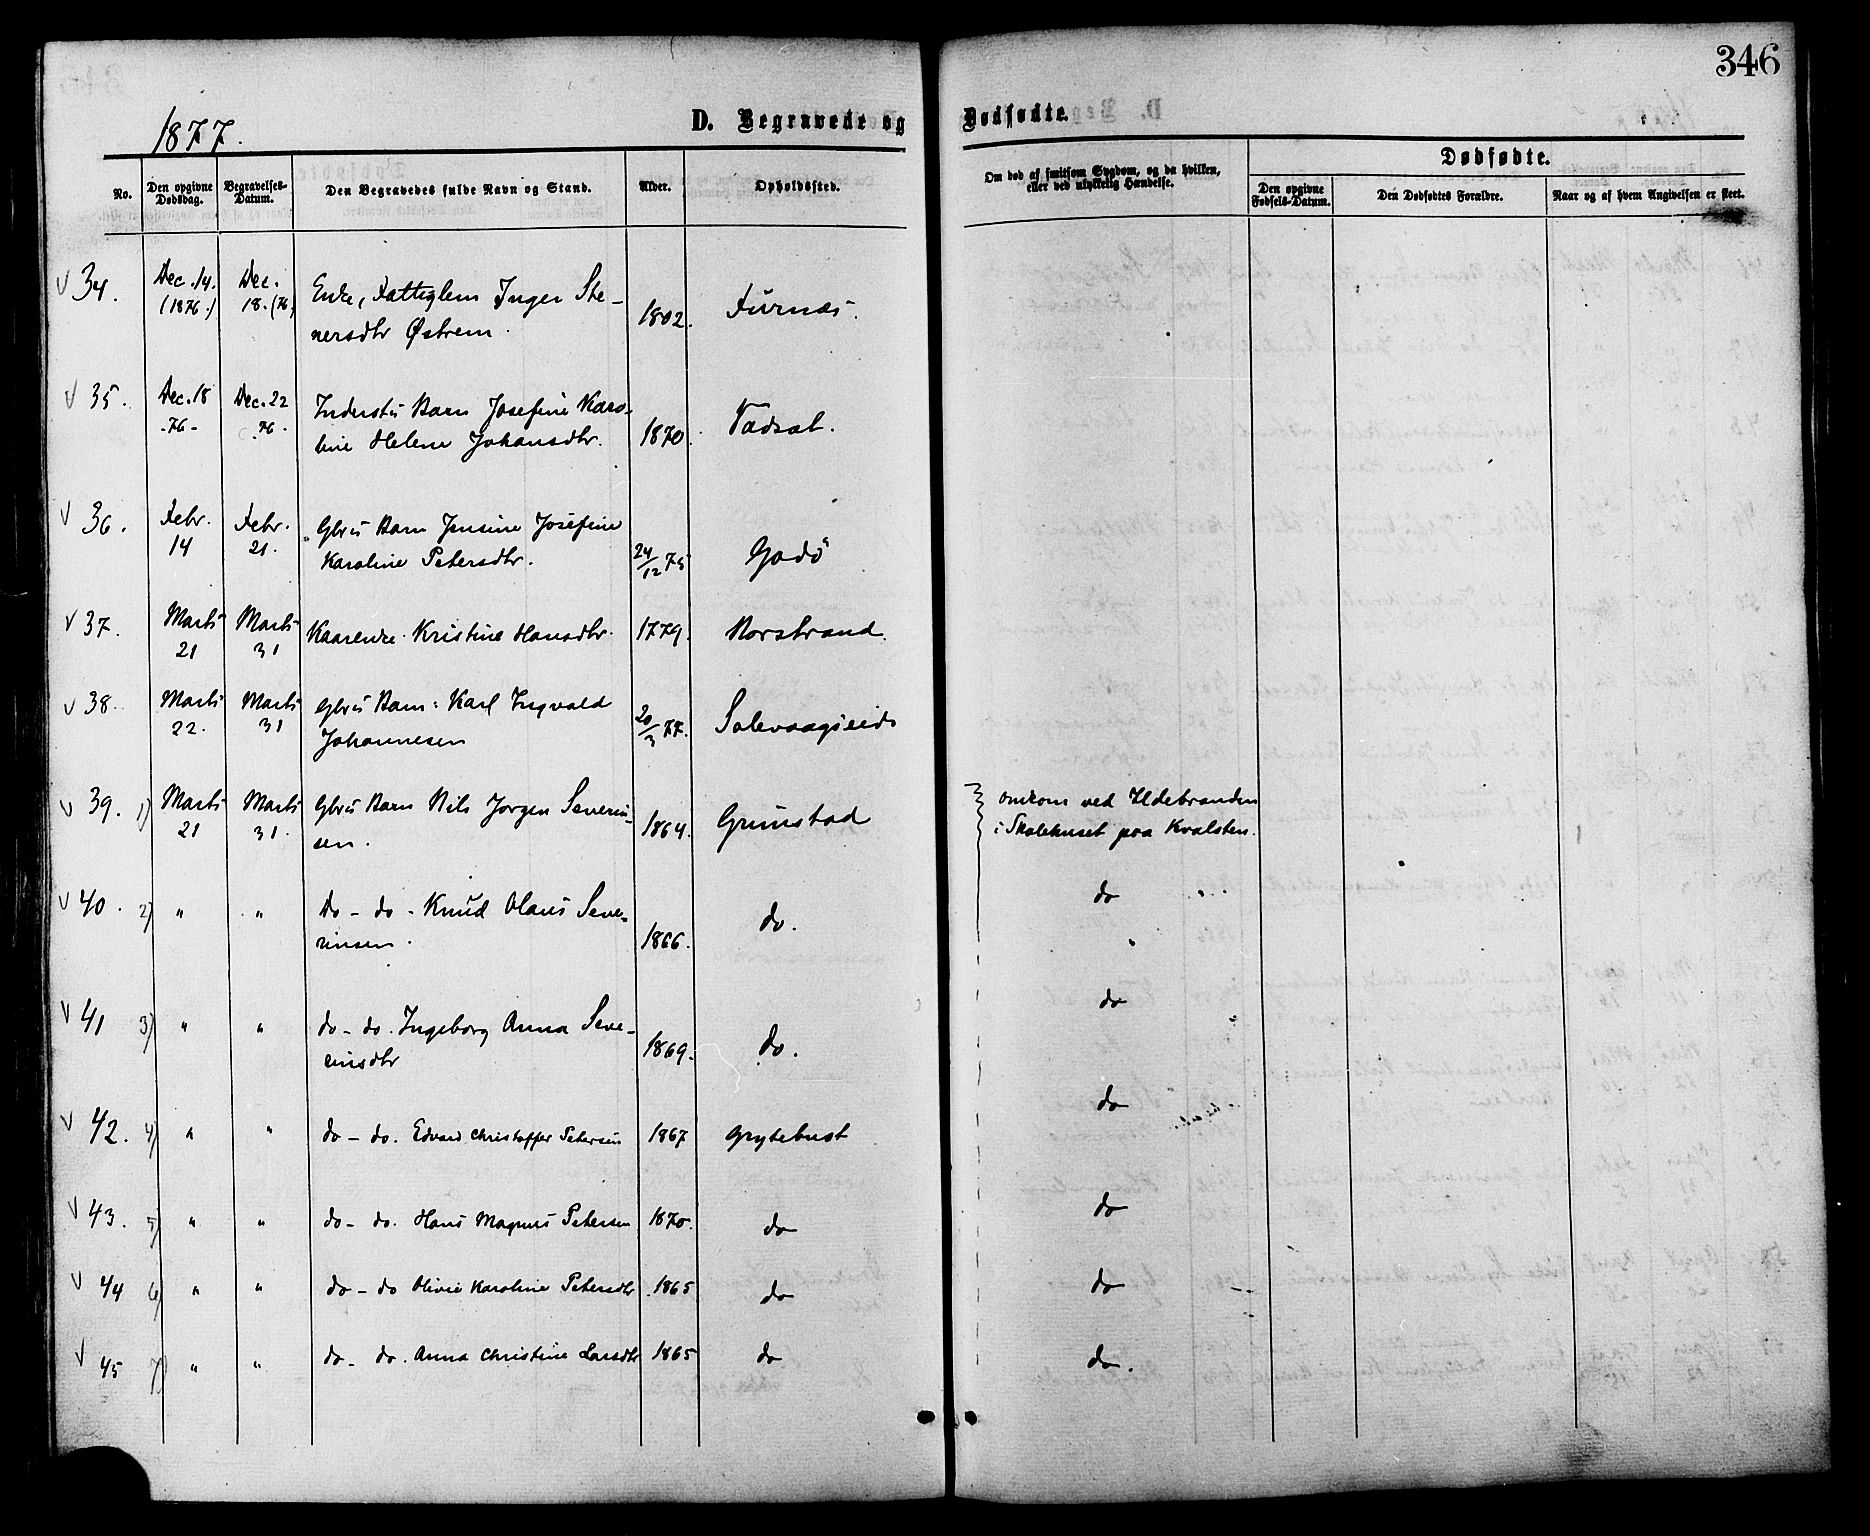 346
1877.
D. Begravede og Dødfødte.
No.
Den opgivne Dødsdag.
Begravelses-Datum.
Den Begravedes fulde Navn og Stand.
Alder.
Opholdssted.
Om død af smitsom Sygdom, og da hvilken,
eller ved ulykkelig Hændelse.
Dødfødte.
Den opgivne Fødsels-Datum.
Den Dødfødtes Forældre.
Naar og af hvem Angivelsen er skeet.
34. Dec. 14. (1876.) Dec. 18. (76) Enke, Fattiglem Inger Ste-
nersdtr Østrem. 1802. Furnæs.
35. Dec. 18 -76- Dec. 22 .76. Inderstes Barn Josefine Karo-
line Helene Johansdtr. 1870. Vadsæt.
36. Febr. 14 Febr. 21. Gbrs Barn Jensine Josefine
Karoline Petersdtr. 24/12 75 Godø
37. Marts 21 Marts 31 Kaarenke. Kristine Hansdtr. 1779. Norstrand.
38. Marts 22. Marts 31 Gbrs Barn: Karl Ingvald
Johannesen 20/3 77. Solevaagseid
39. 1) Marts 21 Marts 31. Gbrs Barn Nils Jørgen Severin-
sen. 1864. Grimstad omkom ved Ildebranden
i Skolehuset paa Kvalsten.
40. 2) " " Do - do - Knud Olaus Seve-
rinsen. 1866. do. do
41 3) " " do - do. Ingeborg Anna Seve-
rinsdtr 1869. do. do
42. 4) " " do - do. Edvard Christoffer Petersen 1867 Grytebust do
43. 5) " " do - do. Hans Magnus Petersen 1870. do do
44 6) " " do - do Olivie Karoline Petersdtr 1865 do do
45 7) " " do - do. Anna Christine Larsdtr 1865 do do.